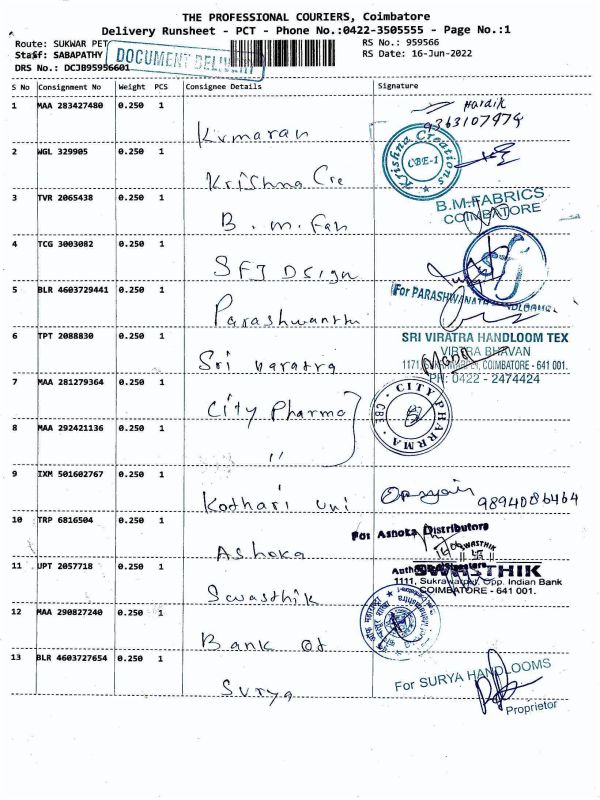 THE PROFESSIONAL COURIERS, Coimbatore
Delivery Runsheet - PCT - Phone No.:0422-3505555 - Page No.:1
Route: SUKWAR PET
RS No.: 959566
Staff: SABAPATHY
DOCUMENT DELIVERY
RS Date: 16-Jun-2022
DRS No.: DCJB95956601
S No Consignment No Weight PCS Consignee Details Signature
1 MAA 283427480 0.250 1 Kumaran Hardik
9363107979
2 WGL 329905 0.250 1 Krishna Cre Krishna Creations CBE-1
3 TVR 2065438 0.250 1 B.m.Fab B.M.FABRICS
COIMBATORE
4 TCG 3003082 0.250 1 SFJ Dsign
5 BLR 4603729441 0.250 1 Parashwanth For PARASHWANATH HANDLOOMS
6 TPT 2088830 0.250 1 Sri varatra SRI VIRATRA HANDLOOM TEX
VIRTRA BHAVAN
1171, COIMBATORE - 641 001.
PH: 0422 - 2474424
7 MAA 281279364 0.250 1 City Pharma CITY PHARMA CBE
8 MAA 292421136 0.250 1 "
9 IXM 501602767 0.250 1 Kothari uni 9894086464
10 TRP 6816504 0.250 1 Ashoka For Ashoka Distributors
Authorised Signatory
11 UPT 2057718 0.250 1 Swasthik SWASTHIK
SWASTHIK
1111, Sukrawarpet, Opp. Indian Bank
COIMBATORE - 641 001.
12 MAA 290827240 0.250 1 Bank of
13 BLR 4603727654 0.250 1 Surya For SURYA HANDLOOMS
Proprietor